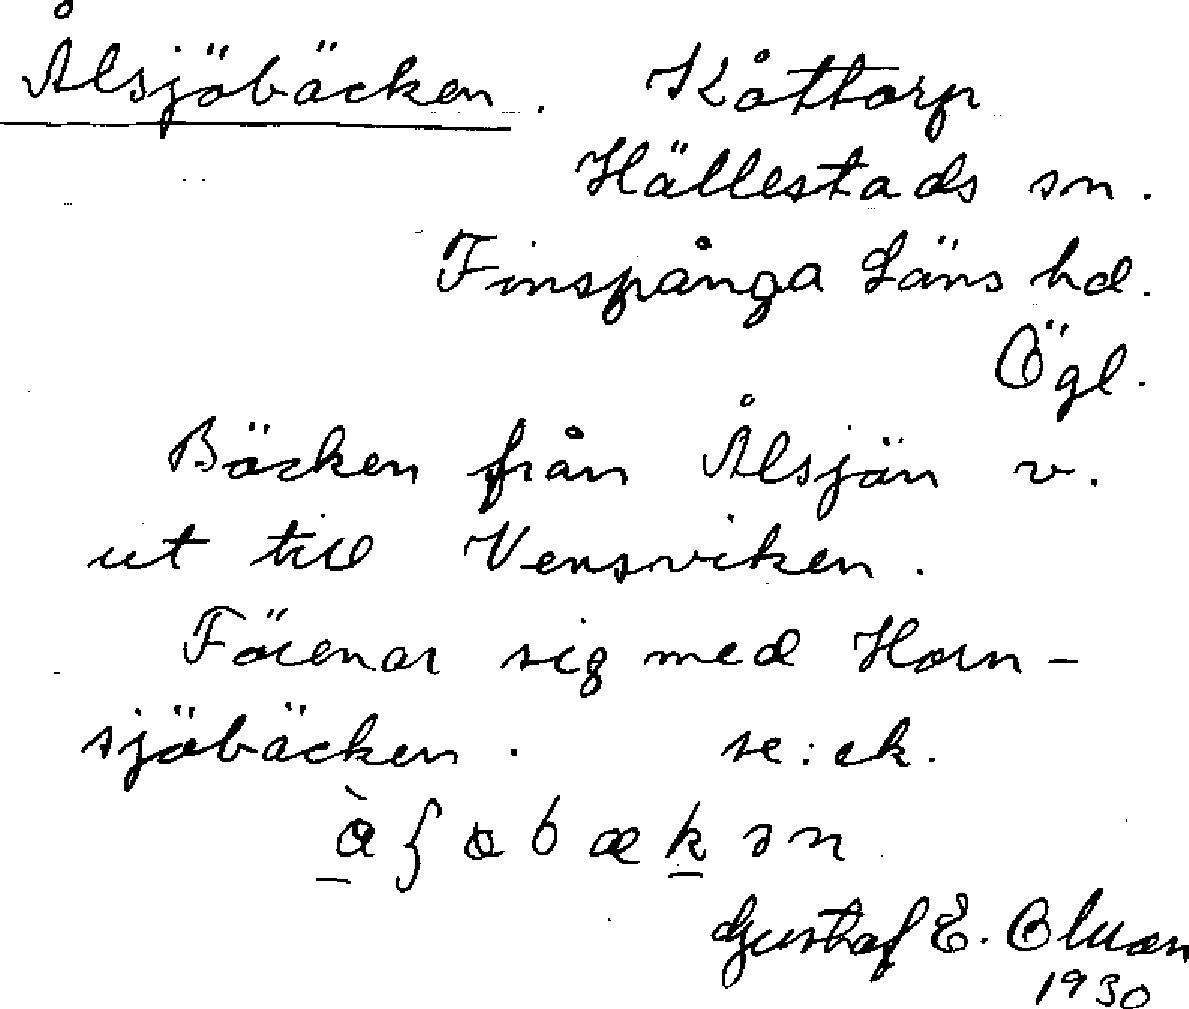 Ålsjöbäcken. Kåttorp
Hällestads sn.
Finspånga Läns hd.
Ögl.
Bäcken från Ålsjän v.
ut till Vensviken.
Förenar sig med Horn-
sjöbäcken. se: ek.
Gustaf E.
1930